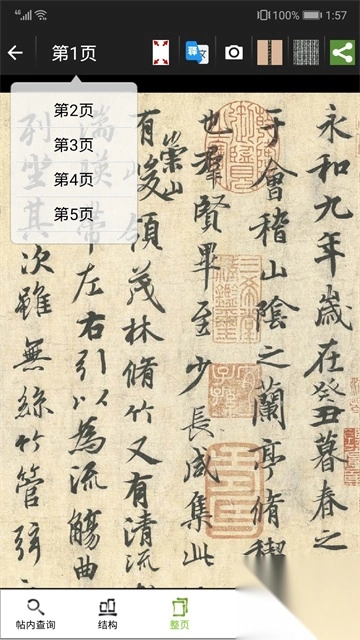 4G
100%
1:57
第1页
第2页
第3页
第4页
第5页
永和九年歲在癸丑暮春之
于會稽山陰之蘭亭脩禊
也群賢畢至少長咸集此
有崇山峻領茂林脩竹又有清流
湍暎帶左右引以為流觴曲
列坐其次雖無絲竹管弦
帖内查询
结构
整页